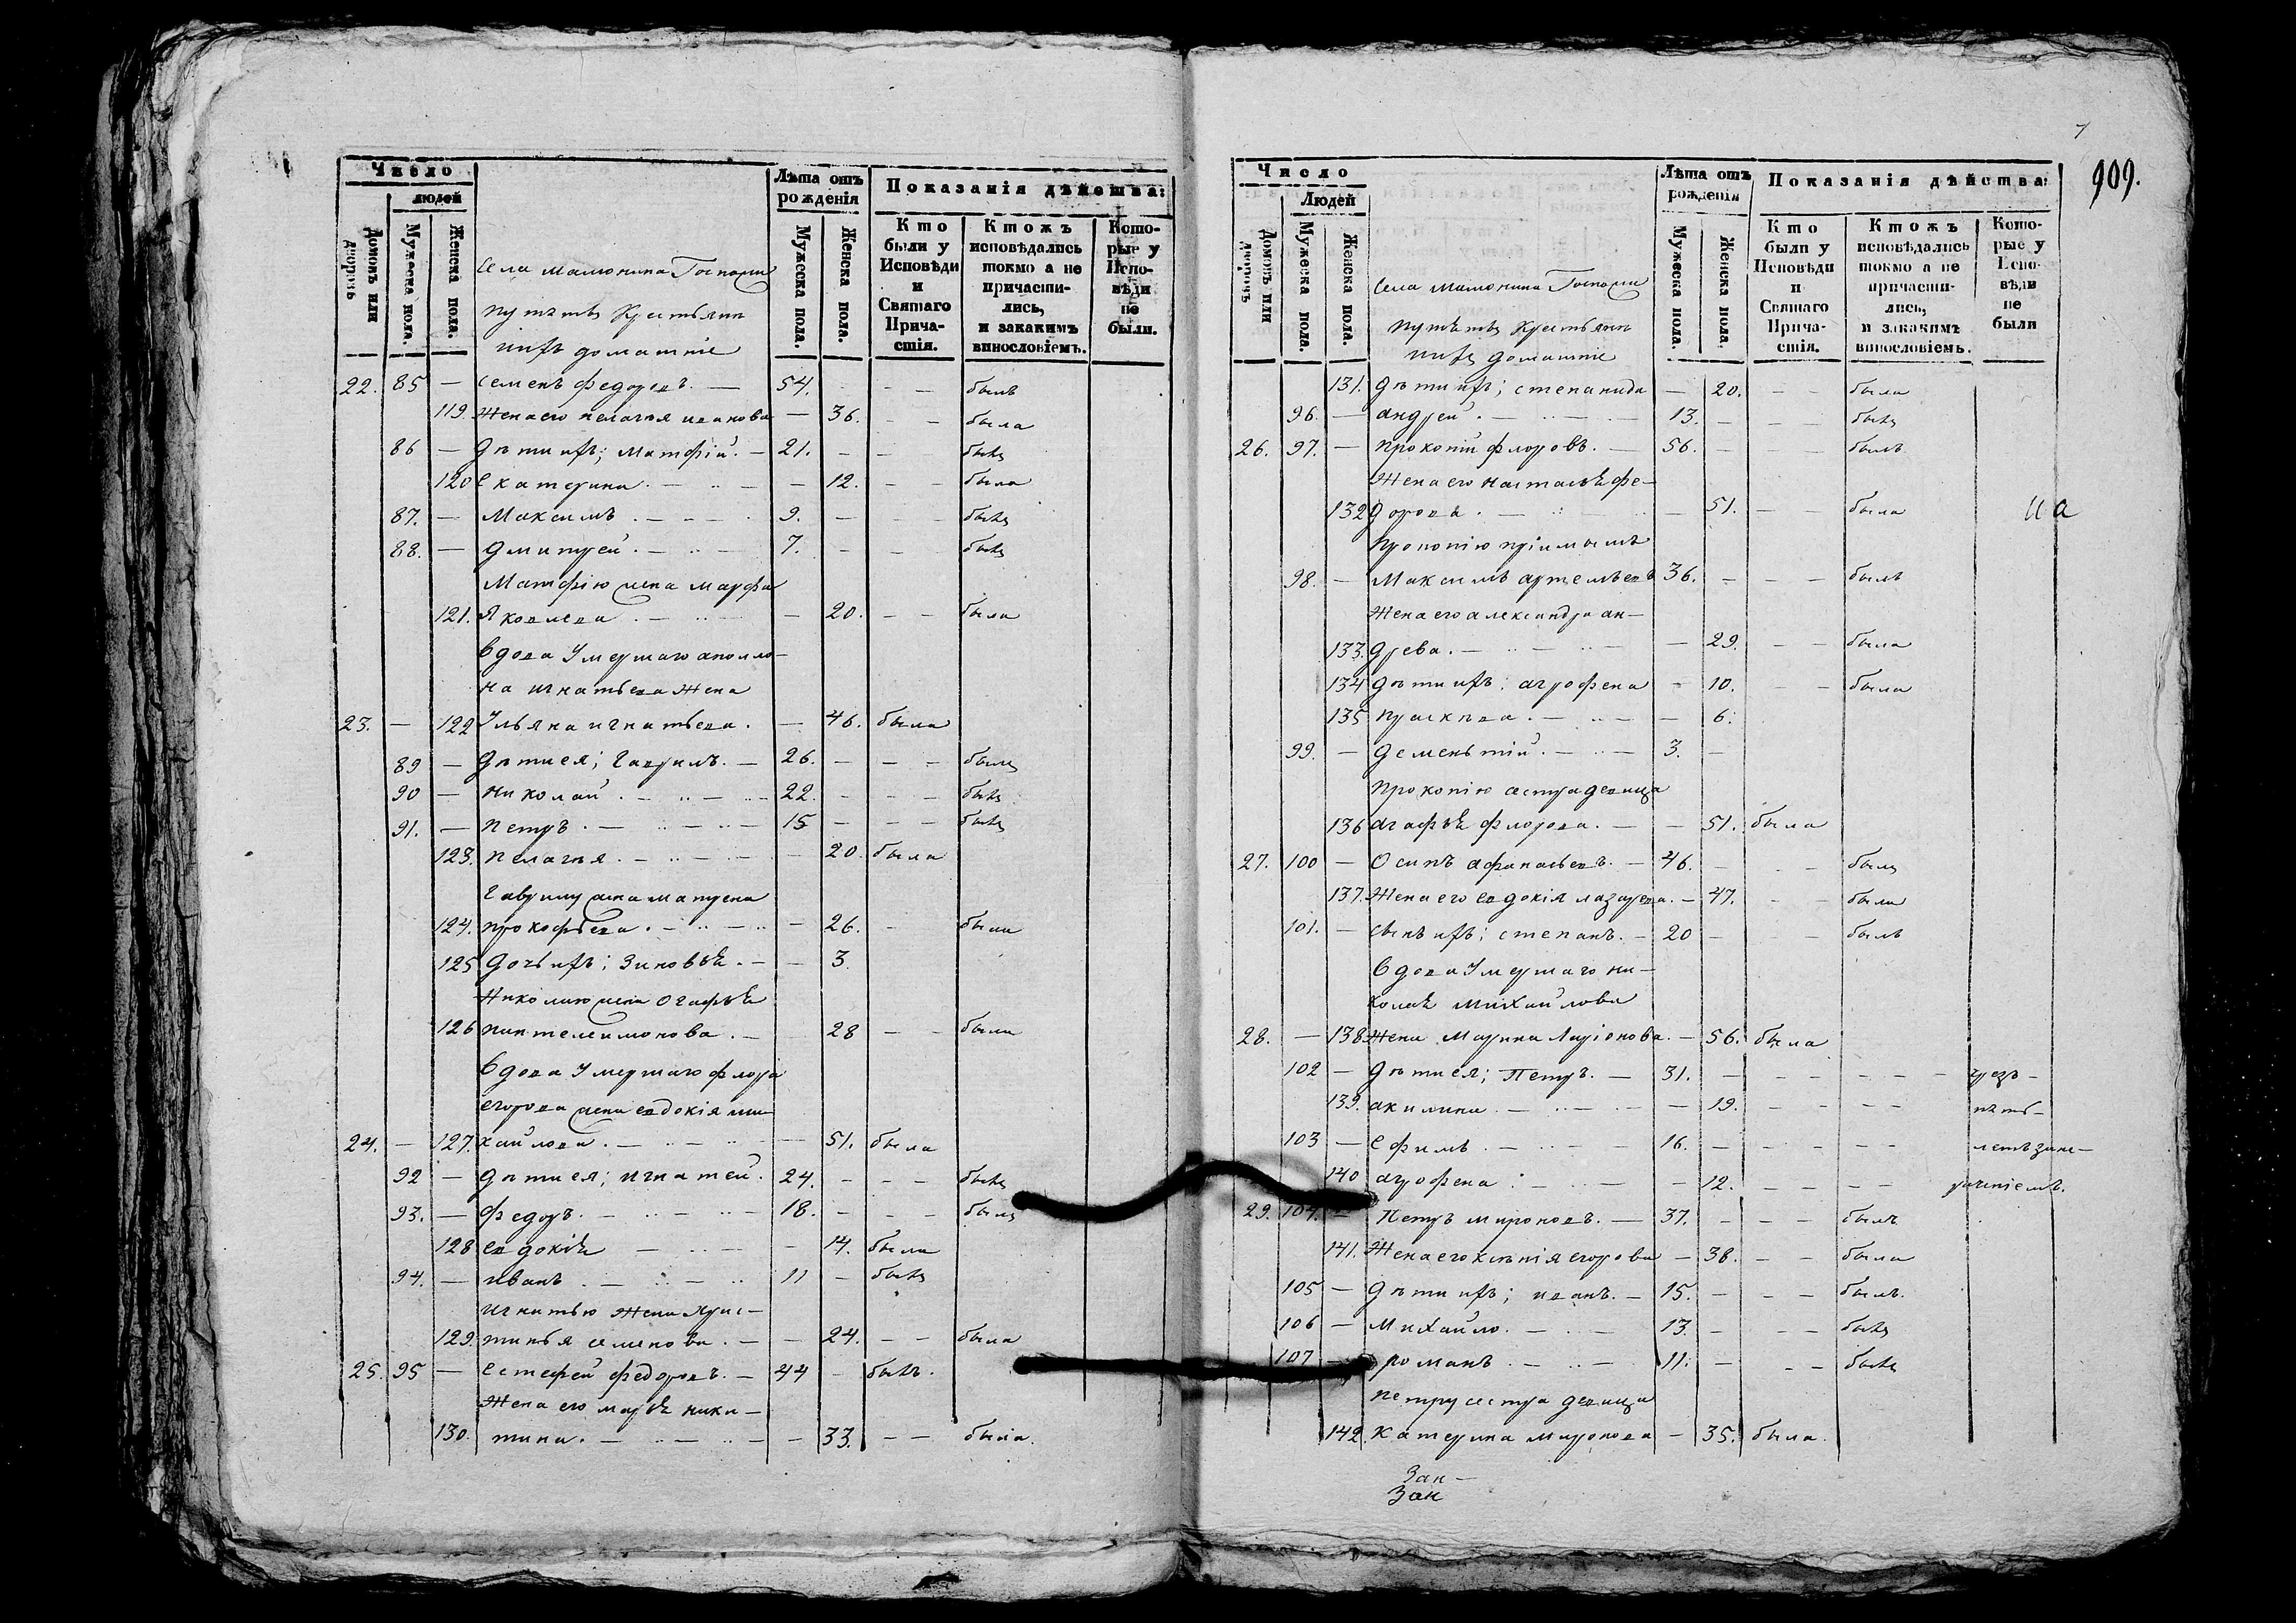 Число
людей
Домовъ или дворовъ
Мужеска пола.
Женска пола.
Лѣта отъ рожденія
Мужеска пола.
Женска пола.
Показанія дѣйства:
Кто были у Исповѣди и Святаго Причастія.
Ктожъ исповѣдались токмо а не причастились, и закакимъ винословіемъ.
Которые у Исповѣди не были.
села
крестьяне
ихъ домашніе
22. 85 — семенъ федоровъ. — 54. - - — былъ
119. Жена его пелагѣя иванова — 36. - - была
86 — Дѣти ихъ; Матфій. — 21. - - былъ
120 екатерина. — - 12. - - была
87. — Максимъ. — 9. — - - былъ
88. — Дмитрей. — 7. - - былъ
Матфію жена марфа
121. Яковлева. — — 20. - - была
Вдова Умершаго аполло-
на игнатьева Жена
23. — 122 Ульяна игнатьева. — 46. была
89 — Дѣти ея; Гаврилъ. — 26. - - - былъ
90 — николай. — 22. - - - былъ
91. — петръ. — 15 - - - былъ
123. пелагѣя. — 20. была
Гаврилу жена матрена
124. прокофьева. — - 26. - была
125 Дочь ихъ; Зиновья. — - 3.
Николаю жена Огафья
126 пантелеимонова. — 28 - - была
Вдова Умершаго флора
егорова жена евдокія ми-
24. — 127. хайлова. — 51. была
92 — Дѣти ея; игнатей. 24. - - - былъ
93. — федоръ. — 18. - - - былъ
128 евдокія — - 14. была
94. — иванъ. — 11 - былъ
игнатью Жена Хрис-
129. тинья семенова. — 24. - - была
25. 95 — Естефей федоровъ. — 44 - былъ.
Жена его марья ники-
130. тина. — - 33. - - была.
909.
Число
Людей
Домовъ или дворовъ
Мужеска пола.
Женска пола.
Лѣта отъ рожденія
Мужеска пола.
Женска пола.
Показанія дѣйства:
Кто были у Исповѣди и Святаго Причастія.
Ктожъ исповѣдались токмо а не причастились, и закакимъ винословіемъ.
Которые у Исповѣди не были
села
крестьяне
ихъ домашніе
131. Дѣти ихъ; степанида — 20. - - была
96. — андрей. — 13. - - - былъ
26. 97. — прокопій флоровъ. — 56. - - - былъ
Жена его настасья фе-
132 дорова. — 51. — была
прокопію пріимышъ
98. — Максимъ артемьевъ 36. - - - былъ
Жена его александра ан-
133. древа. — — 29. - - была
134 Дѣти ихъ; агрофена - 10. - - была
135 прасковья. — — 6.
99. — Дементій. — 3. —
прокопію сестра девица
136 агафья флорова. — - 51. была
27. 100 — Осипъ афанасьевъ. — 46. - - - былъ
137. Жена его евдокія лазарева. - 47. - - была
101. — сынъ ихъ; степанъ. — 20 - - - былъ
Вдова Умершаго ни-
колая Михайлова
28. — 138 Жена Марина Ларіонова. - 56. была
102 — Дѣти ея; Петръ. — 31. — - - - - чрезъ-
139. акилина. — - 19. - - - -
103 — Ефимъ. — 16. - - - -
140 агрофена. — - 12. - - - -
29. 104. — Петръ мироновъ. — 37. - - - былъ
141. Жена его ксенія егорова — 38. - - была
105 — Дѣти ихъ; иванъ. — 15. - - - былъ.
106 — Михайло. — 13. - - - былъ
107 — романъ. — 11. - - - былъ
петру сестра девица
142. Катерина миронова — 35. была.
Зак-
Зак